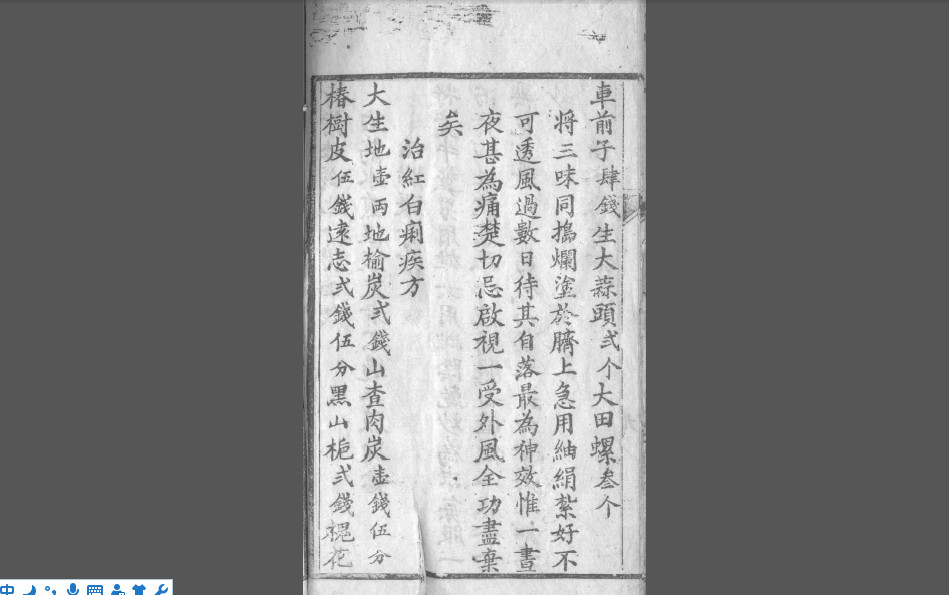 車前子肆錢生大蒜頭弍个大田螺叁个
将三味同搗爛塗於臍上急用紬絹紮好不
可透風過數日待其自落最為神效惟一晝
夜甚為痛楚切忌啟視一受外風全功盡棄
矣
治紅白痢疾方
大生地壺兩地榆炭弍錢山查肉炭壺錢伍分
椿樹皮伍錢遠志弍錢伍分黑山梔弍錢槐花
中